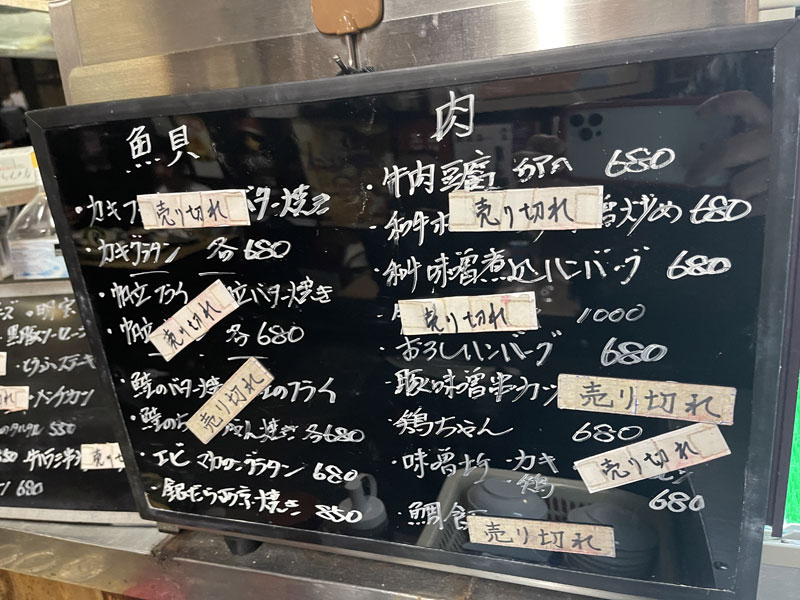 魚貝
・カキフ 売り切れ バター焼き
・カキグラタン 各680
・帆立フライ 帆立バター焼き
・帆立 売り切れ 各680
・鮭のバター焼 鮭のフライ
・鮭のち 売り切れ ゃん焼き 各680
・エビマカログラタン 680
・銀だら西京焼き 850
肉
・牛肉豆腐 680
・和牛ホ 売り切れ 噌炒め 680
・和牛味噌煮込ハンバーグ 680
売り切れ 1000
・おろしハンバーグ 680
・豚味噌串カツ 売り切れ
・鶏ちゃん 680
・味噌 ・カキ 売り切れ
・鶏 680
・鯛 売り切れ
・黒豚ソーセージ
・とうふステキ
550
売り切れ
680